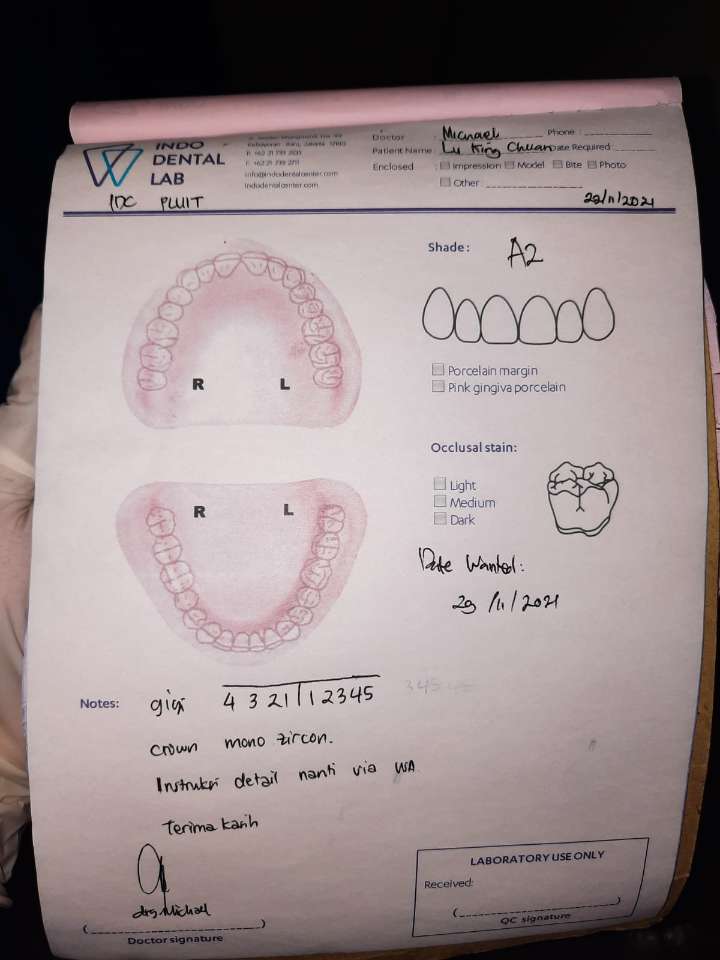 INDO
DENTAL
LAB
IDC PLUIT
info@indodentalcenter.com
indodentalcenter.com
Doctor : Michael
Phone :
Patient Name :
Date Required :
Enclosed : Impression Model Bite Photo
Other :
Shade : A2
Porcelain margin
Pink gingiva porcelain
R L
Occlusal stain:
Light
Medium
Dark
R L
Date Wanted:
29/11/2021
Notes: gigi 4 3 2 1 | 1 2 3 4 5
crown mono zircon.
Instruksi detail nanti via WA
Terima kasih
drg Michael
Doctor signature
LABORATORY USE ONLY
Received:
QC signature